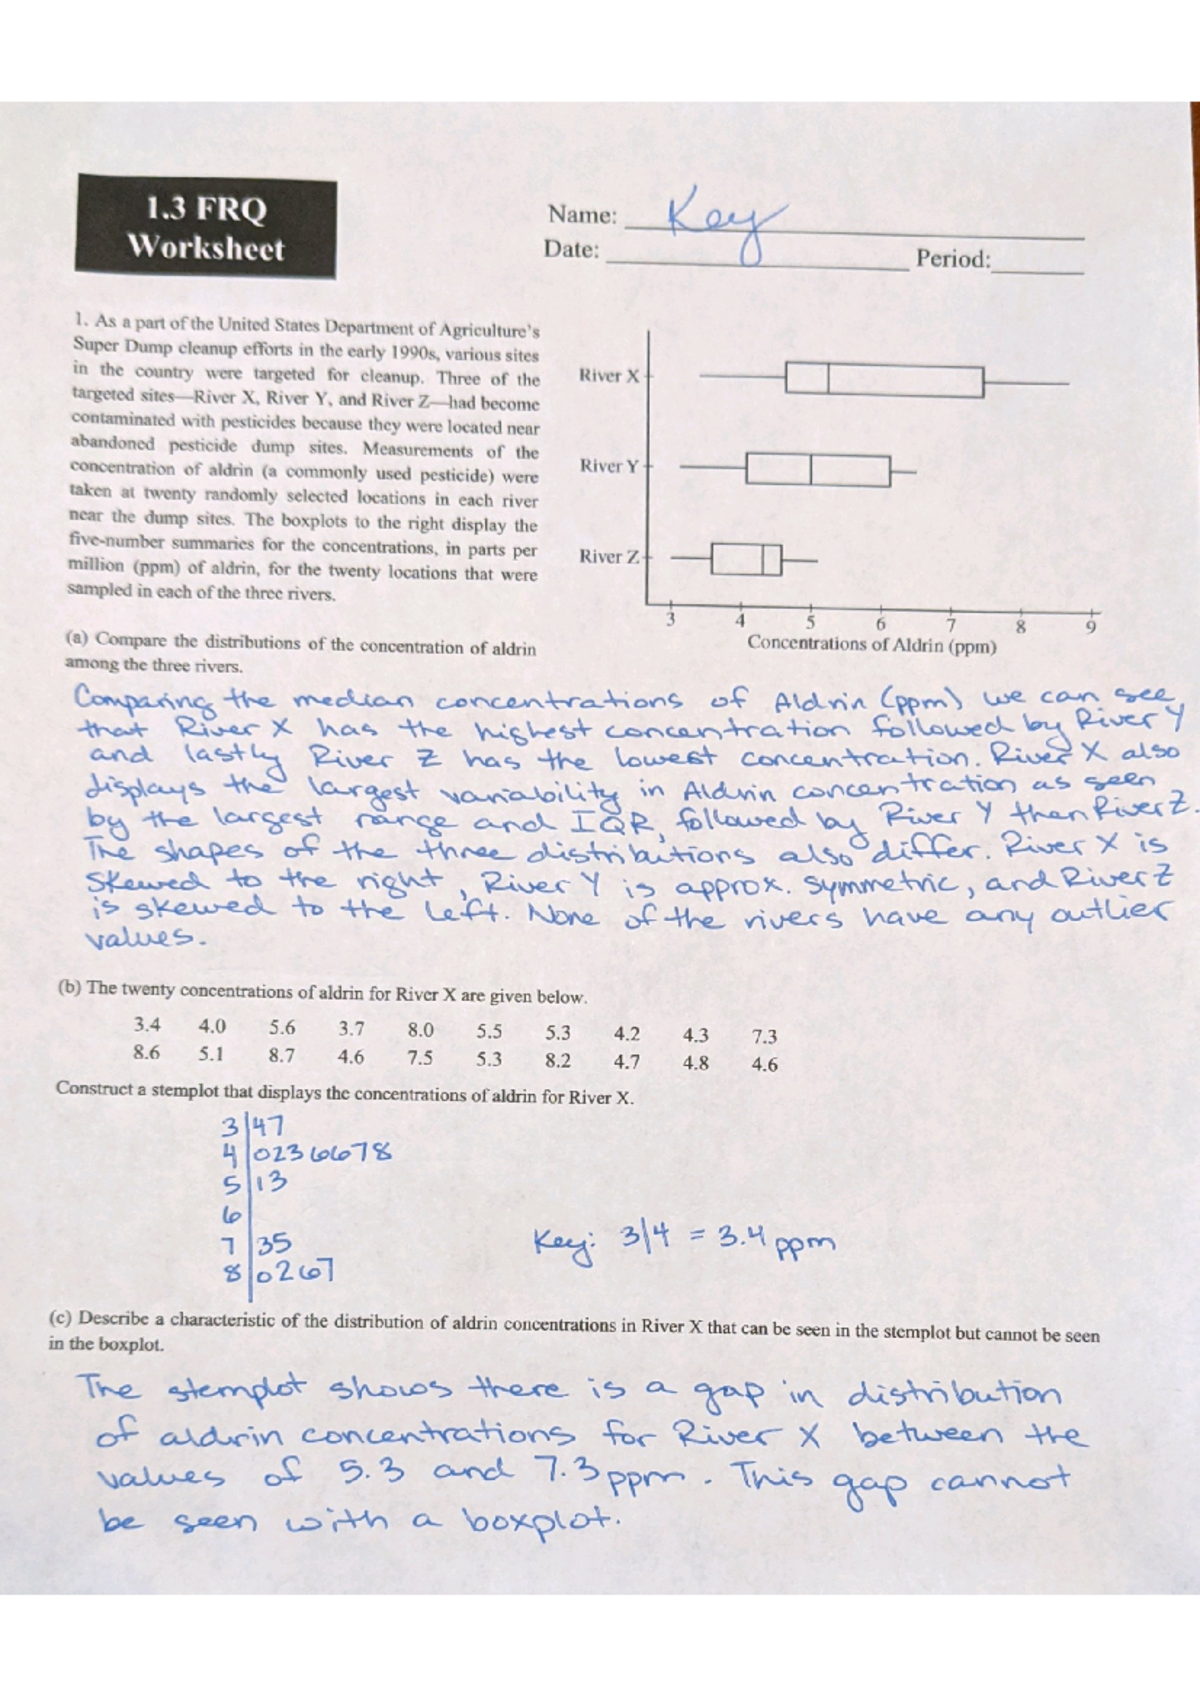 1.3 FRQ
Worksheet
Name: Key
Date:
Period:
1. As a part of the United States Department of Agriculture's
Super Dump cleanup efforts in the early 1990s, various sites
in the country were targeted for cleanup. Three of the
targeted sites—River X, River Y, and River Z—had become
contaminated with pesticides because they were located near
abandoned pesticide dump sites. Measurements of the
concentration of aldrin (a commonly used pesticide) were
taken at twenty randomly selected locations in each river
near the dump sites. The boxplots to the right display the
five-number summaries for the concentrations, in parts per
million (ppm) of aldrin, for the twenty locations that were
sampled in each of the three rivers.
River X
River Y
River Z
3 4 5 6 7 8 9
Concentrations of Aldrin (ppm)
(a) Compare the distributions of the concentration of aldrin
among the three rivers.
Comparing the median concentrations of Aldrin (ppm) we can see
that River X has the highest concentration followed by River Y
and lastly River Z has the lowest concentration. River X also
displays the largest variability in Aldrin concentration as seen
by the largest range and IQR, followed by River Y then River Z.
The shapes of the three distributions also differ. River X is
skewed to the right, River Y is approx. symmetric, and River Z
is skewed to the left. None of the rivers have any outlier
values.
(b) The twenty concentrations of aldrin for River X are given below.
3.4 4.0 5.6 3.7 8.0 5.5 5.3 4.2 4.3 7.3
8.6 5.1 8.7 4.6 7.5 5.3 8.2 4.7 4.8 4.6
Construct a stemplot that displays the concentrations of aldrin for River X.
3|47
4|0236678
5|13
6|
7|35
8|0267
Key: 3|4 = 3.4 ppm
(c) Describe a characteristic of the distribution of aldrin concentrations in River X that can be seen in the stemplot but cannot be seen
in the boxplot.
The stemplot shows there is a gap in distribution
of aldrin concentrations for River X between the
values of 5.3 and 7.3 ppm. This gap cannot
be seen with a boxplot.